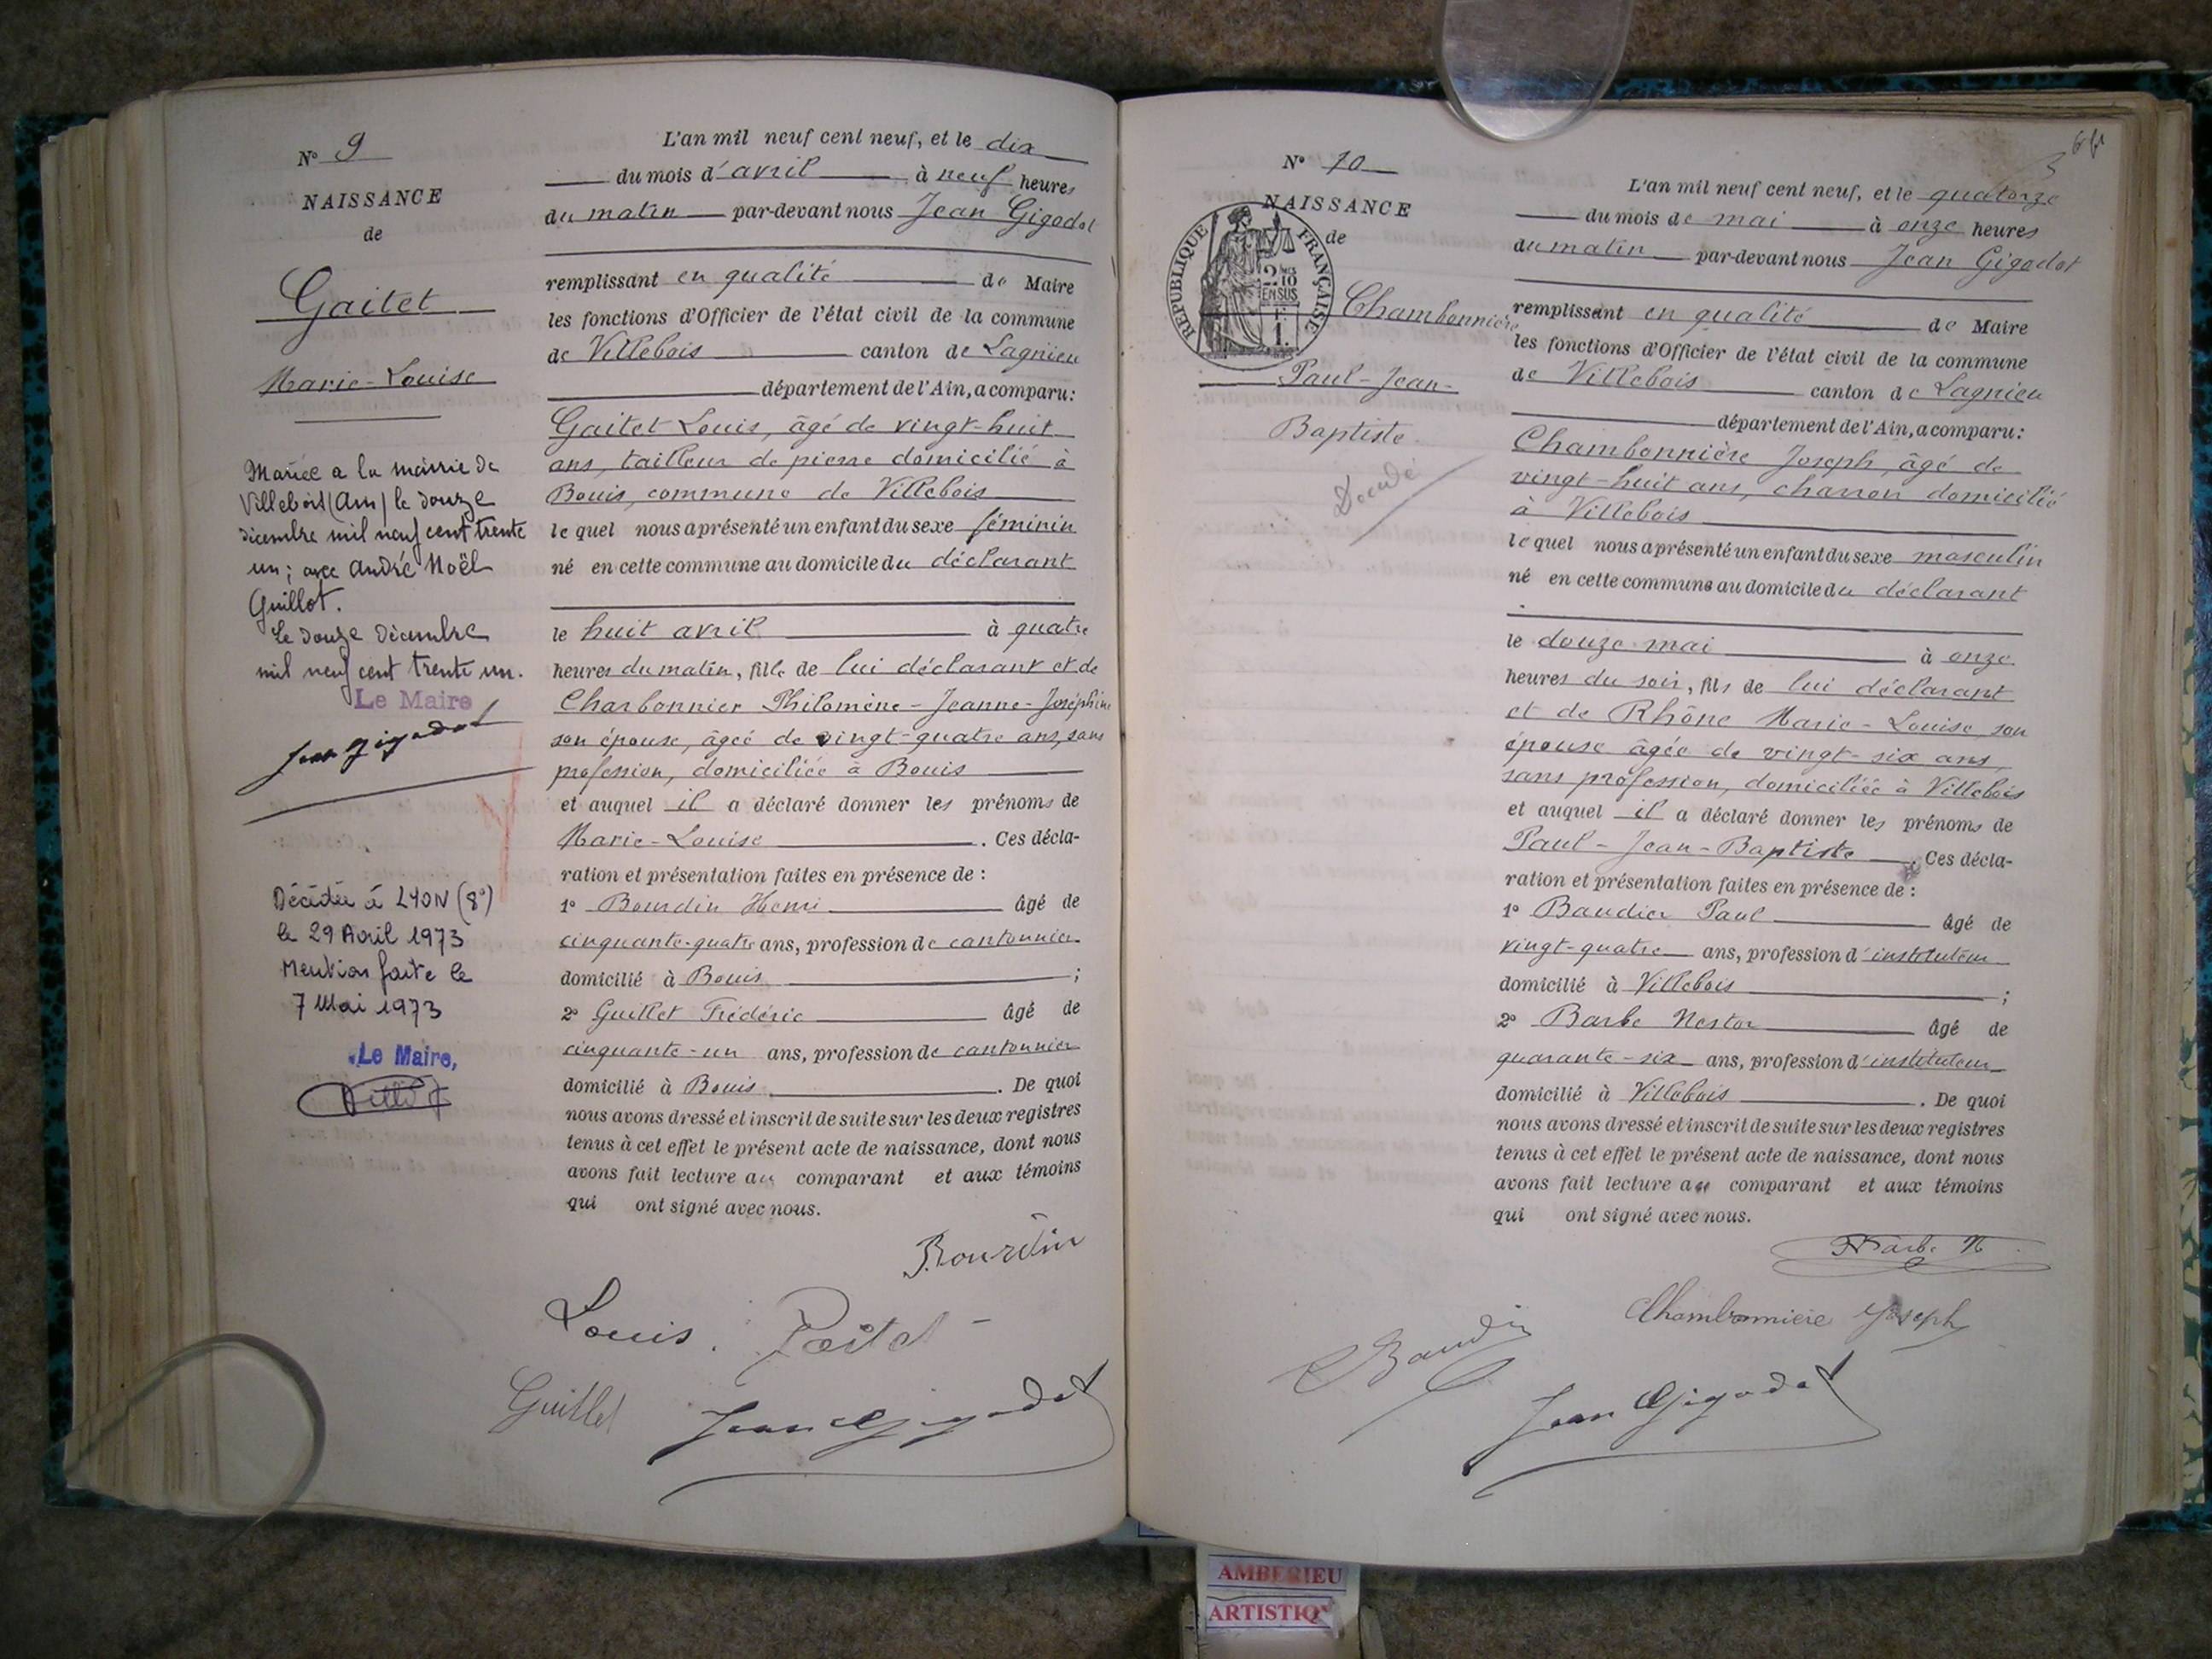 N° 9
NAISSANCE
de
Gaitet
Marie-Louise
Mariée a la mairie de
Villebois (Ain) le douze
décembre mil neuf cent trente
un; avec André Noël
Guillot.
Le douze décembre
mil neuf cent trente un.
Le Maire
Jean Gigodot
Décédée à LYON (8e)
le 29 Avril 1973
Mention faite le
7 Mai 1973
Le Maire,
L'an mil neuf cent neuf, et le dix
du mois d'avril à neuf heures
du matin par-devant nous Jean Gigodot
remplissant en qualité de Maire
les fonctions d'Officier de l'état civil de la commune
de Villebois canton de Lagnieu
département de l'Ain, a comparu:
Gaitet Louis, âgé de vingt-huit
ans, tailleur de pierre domicilié à
Bouis, commune de Villebois
le quel nous a présenté un enfant du sexe féminin
né en cette commune au domicile du déclarant
le huit avril à quatre
heures du matin, fille de lui déclarant et de
Charbonnier Philomène-Jeanne-Joséphine
son épouse, âgée de vingt-quatre ans, sans
profession, domiciliée à Bouis
et auquel il a déclaré donner les prénoms de
Marie-Louise. Ces décla-
ration et présentation faites en présence de :
1° Bourdin Henri âgé de
cinquante-quatre ans, profession de cantonnier
domicilié à Bouis ;
2° Guillet Frédéric âgé de
cinquante-un ans, profession de cantonnier
domicilié à Bouis. De quoi
nous avons dressé et inscrit de suite sur les deux registres
tenus à cet effet le présent acte de naissance, dont nous
avons fait lecture au comparant et aux témoins
qui ont signé avec nous.
Bourdin
Louis. Gaitet
Guillet Jean Gigodot
N° 10
NAISSANCE
de
RÉPUBLIQUE FRANÇAISE
2/10
EN SUS
1 F.
Chambonnière
Paul-Jean-
Baptiste
Décédé
L'an mil neuf cent neuf, et le quatorze
du mois de mai à onze heures
du matin par-devant nous Jean Gigodot
remplissant en qualité de Maire
les fonctions d'Officier de l'état civil de la commune
de Villebois canton de Lagnieu
département de l'Ain, a comparu:
Chambonnière Joseph, âgé de
vingt-huit ans, charron domicilié
à Villebois
le quel nous a présenté un enfant du sexe masculin
né en cette commune au domicile du déclarant
le douze mai à onze
heures du soir, fils de lui déclarant
et de Rhône Marie-Louise, son
épouse âgée de vingt-six ans,
sans profession, domiciliée à Villebois
et auquel il a déclaré donner les prénoms de
Paul-Jean-Baptiste. Ces décla-
ration et présentation faites en présence de :
1° Baudier Paul âgé de
vingt-quatre ans, profession d'instituteur
domicilié à Villebois ;
2° Barbe Nestor âgé de
quarante-six ans, profession d'instituteur
domicilié à Villebois. De quoi
nous avons dressé et inscrit de suite sur les deux registres
tenus à cet effet le présent acte de naissance, dont nous
avons fait lecture au comparant et aux témoins
qui ont signé avec nous.
Barbe N
Chambonnière Joseph
Jean Gigodot
AMBERIEU
ARTISTIQ